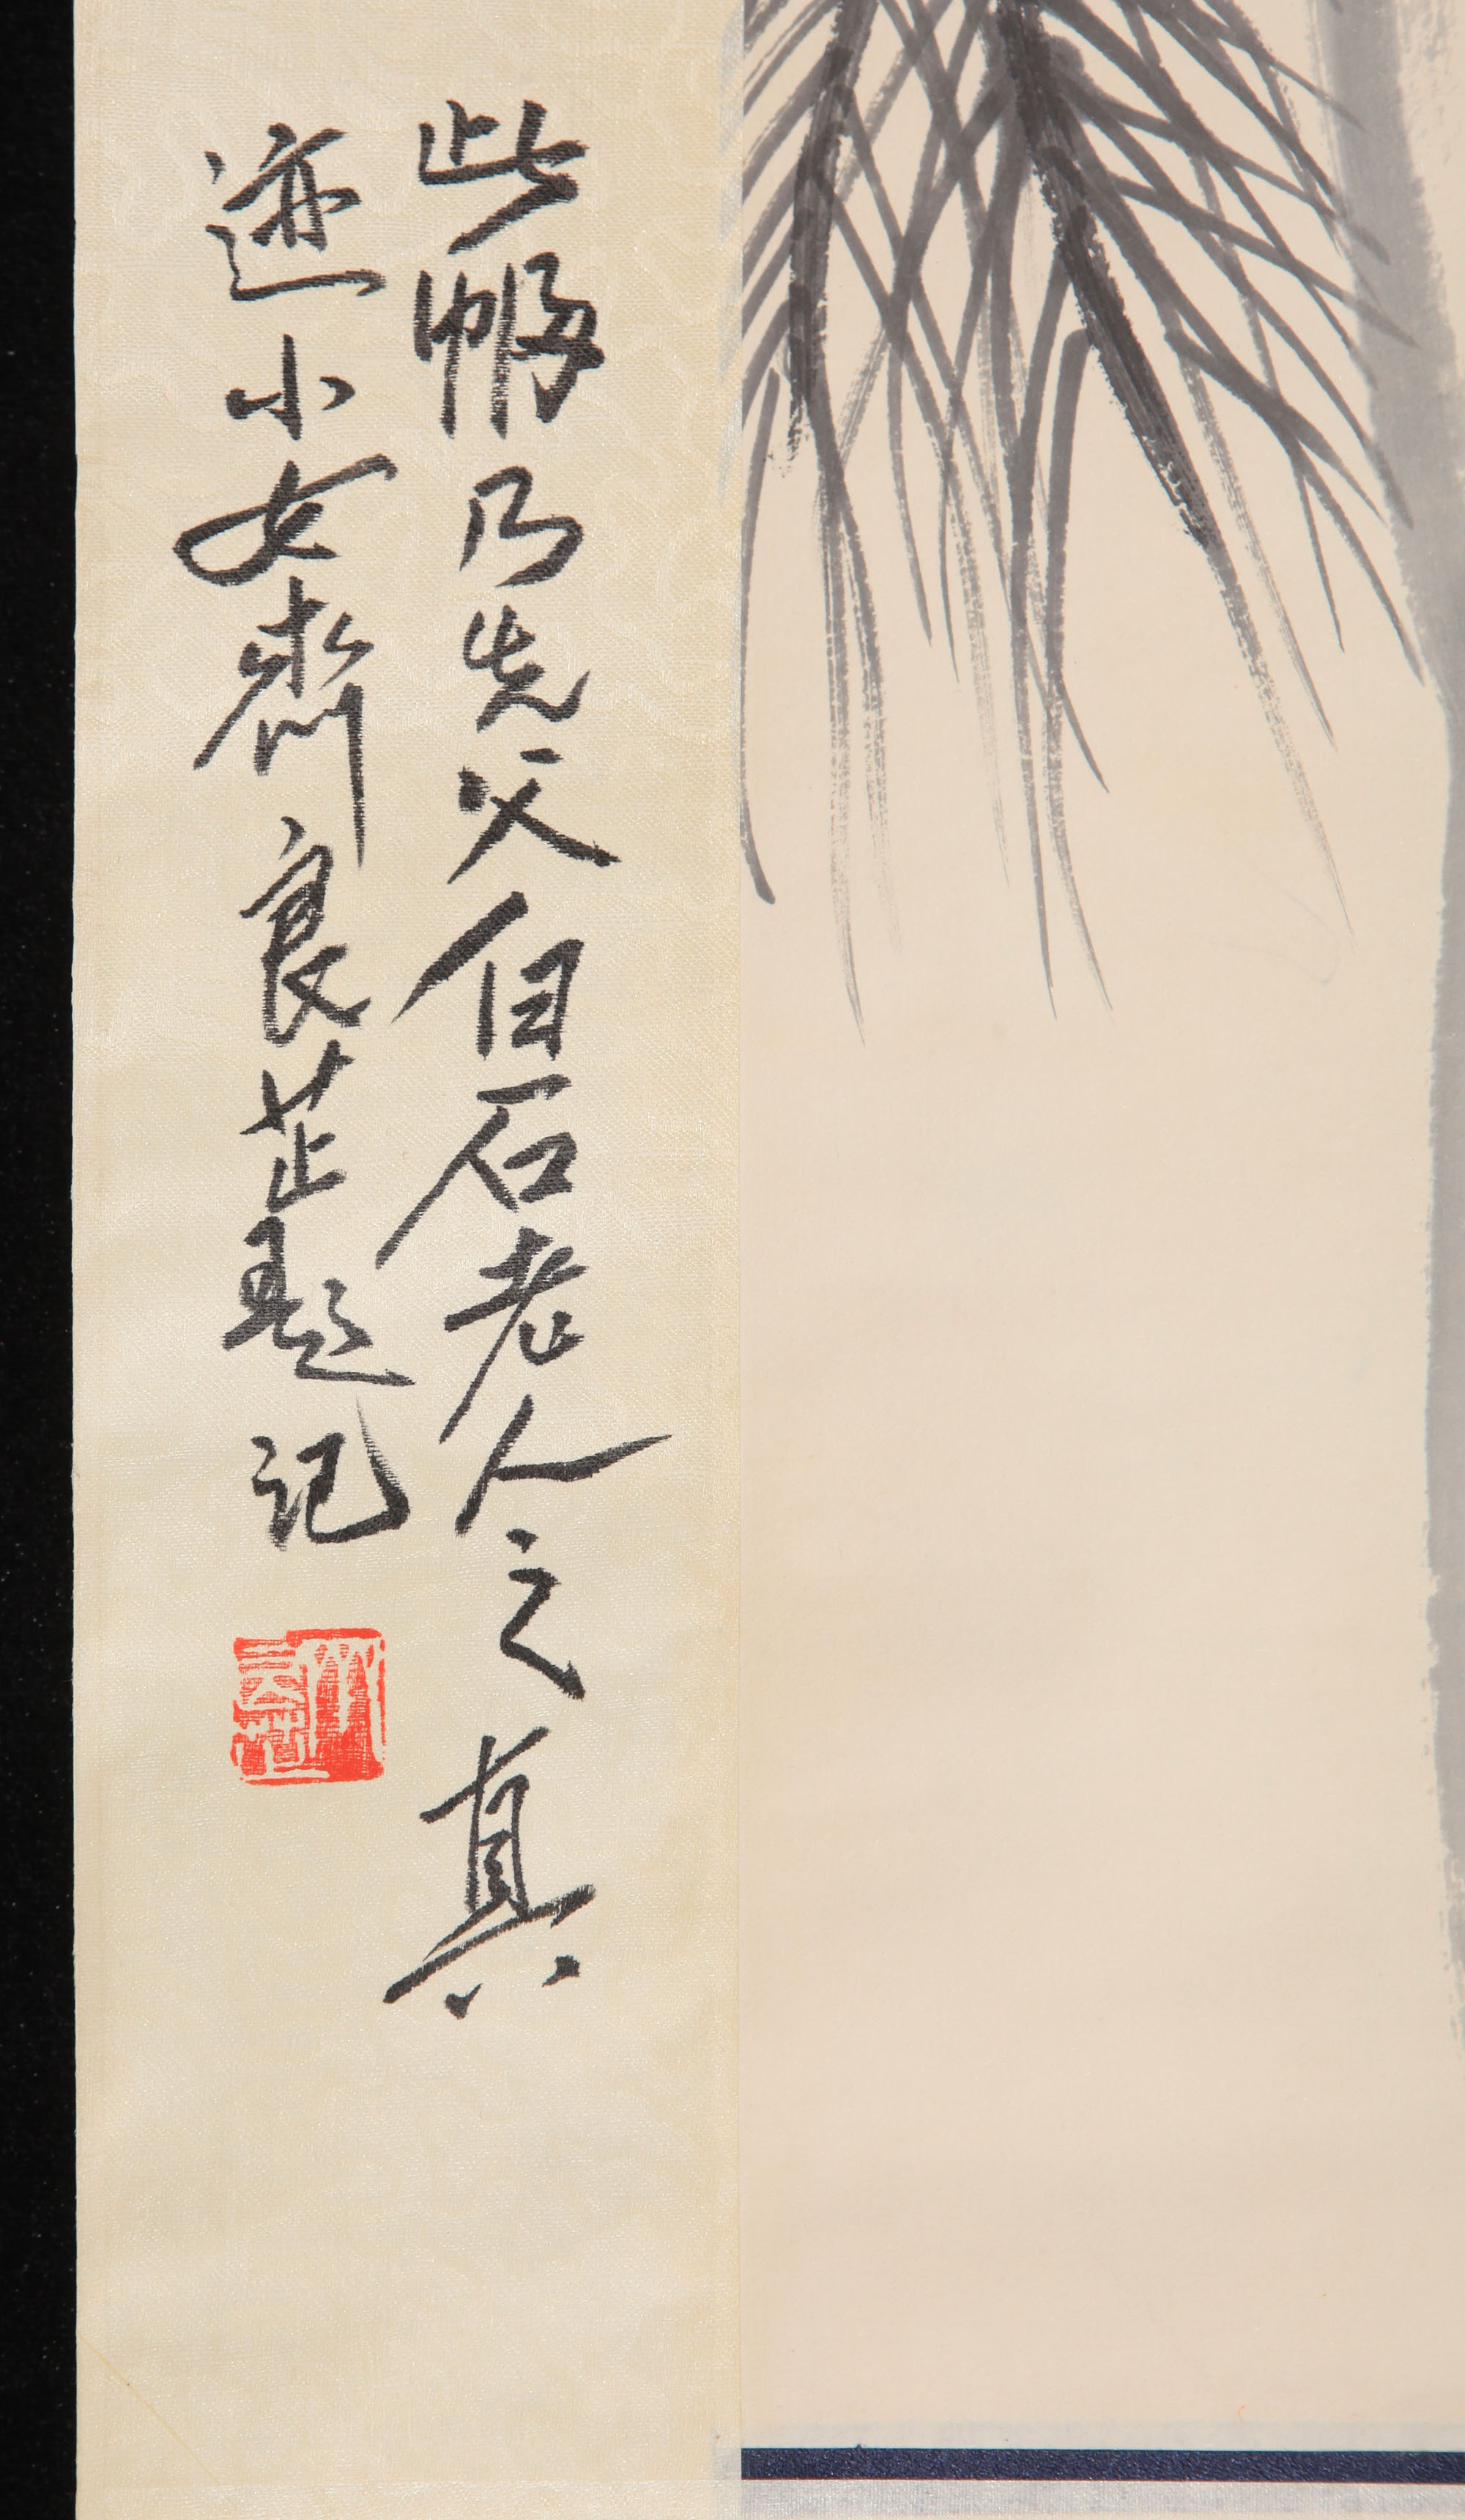 此幅乃先父白石老人之真
迹小女齊良芷题记